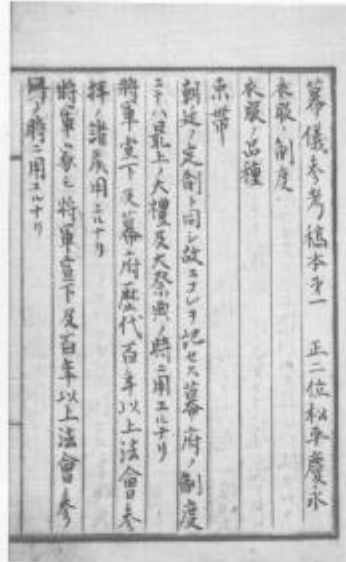 幕儀参考稿本第一　正二位松平慶永
衣服ノ制度
衣服ノ品種
束帯
朝廷ノ定制ト同シ故ニコレヲ記セス幕府ノ制度
ニテハ最上ノ大禮及大祭典ノ時ニ用ユルナリ
将軍宣下及幕府歴代百年以上法會参
拝ノ諸侯用ユルナリ
将軍家モ将軍宣下及百年以上法會参
ノ時ニ用ユルナリ